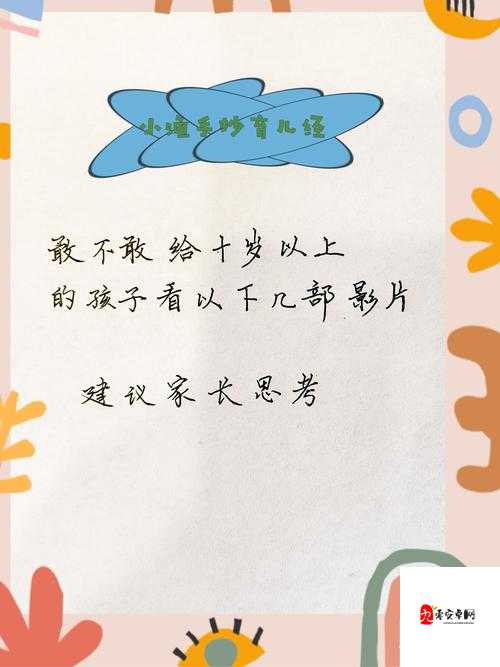 小瀍手抄育儿经
敢不敢 给十岁以上
的孩子看以下几部影片
建议家长思考
零安卓网